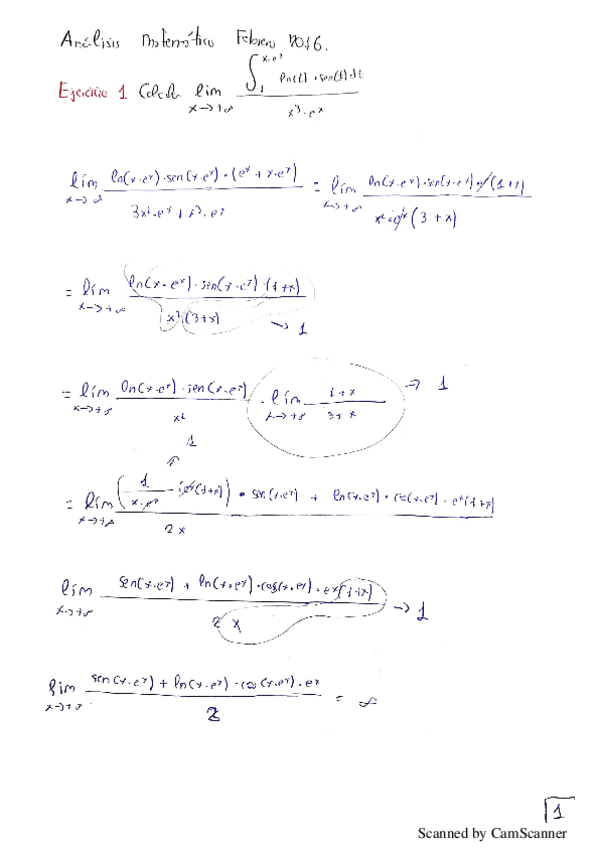 Análisis Matemático Febrero 2016.
Ejercicio 1 Calcula lim x→+∞ ∫₁^(x·eˣ) ln(t)·sen(t) dt / x³·eˣ
lím x→+∞ ln(x·eˣ)·sen(x·eˣ)·(eˣ + x·eˣ) / 3x²·eˣ + x³·eˣ = lím x→+∞ ln(x·eˣ)·sen(x·eˣ)·eˣ(1+x) / x²·eˣ(3+x)
= lím x→+∞ ln(x·eˣ)·sen(x·eˣ)·(1+x) / x²·(3+x) → 1
= lím x→+∞ ln(x·eˣ)·sen(x·eˣ) / x² · lím x→+∞ 1+x / 3+x → 1
1
= lím x→+∞ (1 / x·eˣ · eˣ(1+x)) · sen(x·eˣ) + ln(x·eˣ)·cos(x·eˣ)·eˣ(1+x) / 2x
lím x→+∞ sen(x·eˣ) + ln(x·eˣ)·cos(x·eˣ)·eˣ(1+x) / 2x → 1
lím x→+∞ sen(x·eˣ) + ln(x·eˣ)·cos(x·eˣ)·eˣ / 2 = ∞
1
Scanned by CamScanner